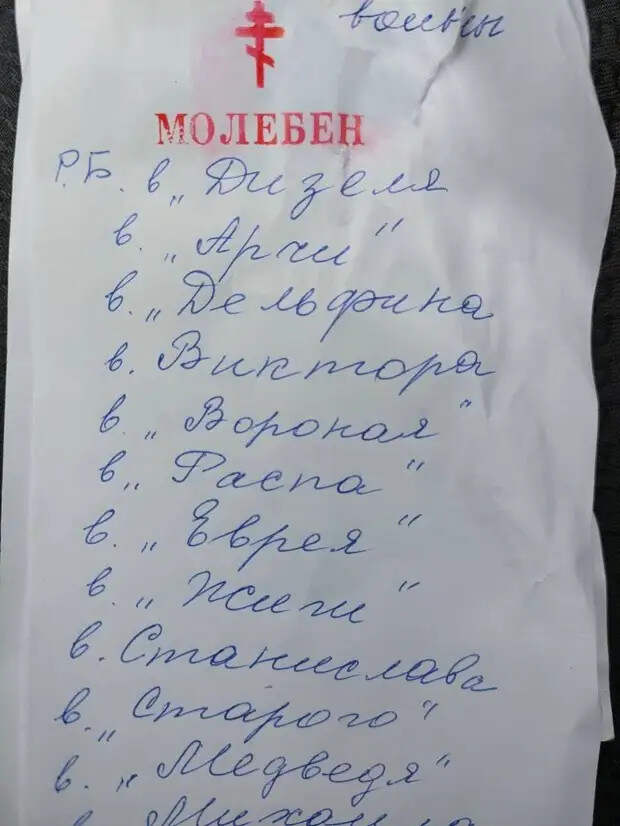 воины
МОЛЕБЕН
Р.Б. в „Дизеля
в. „Арчи"
в. „Дельфина
в. Виктора
в. „Вороная"
в „Распа"
в. „Еврея"
в. „Жиги"
в. Станислава
в. „Старого"
в. „Медведя"